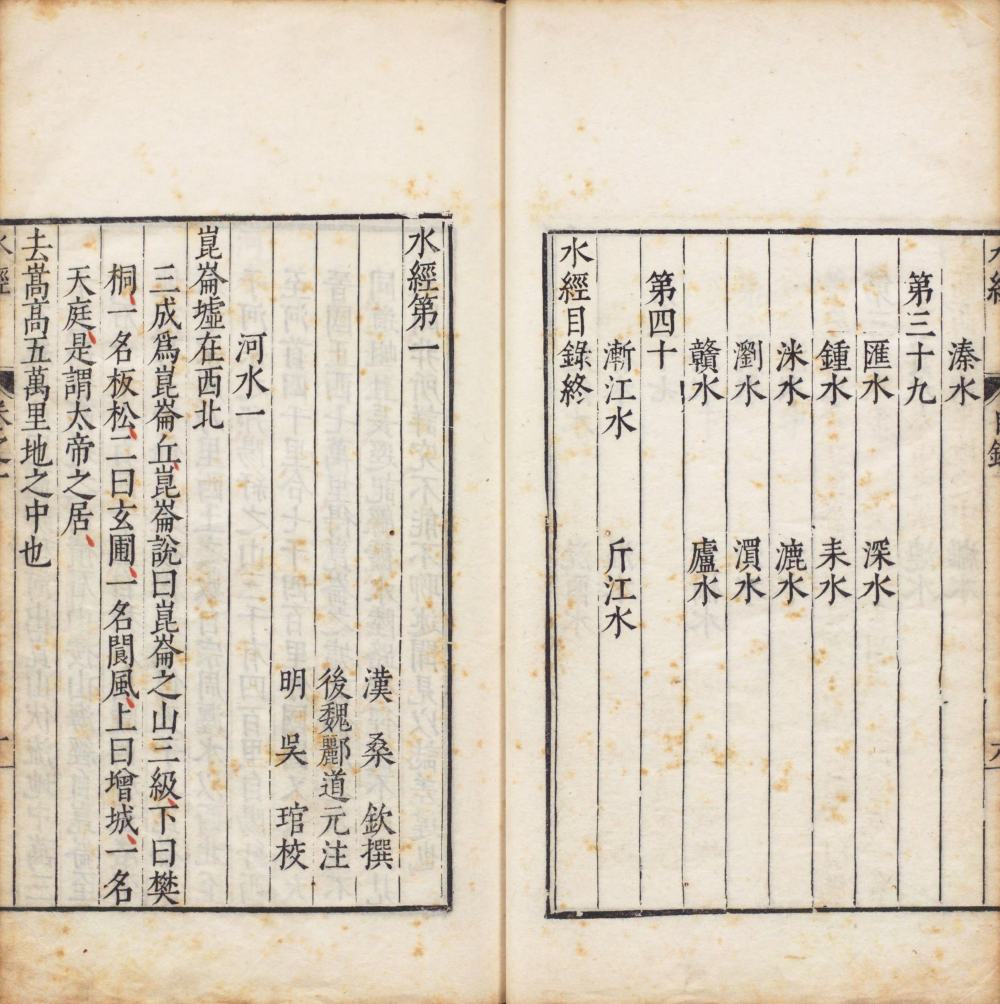 溱水
第三十九
匯水 深水
鍾水 耒水
洣水 漉水
瀏水 水
贛水 廬水
第四十
漸江水 斤江水
水經目錄終
水經第一
漢 桑 欽撰
後魏酈道元注
明 吳 琯校
河水一
崑崙墟在西北
三成爲崑崙丘崑崙說曰崑崙之山三級下曰樊
桐一名板松二曰玄圃一名閬風上曰增城一名
天庭是謂太帝之居
去嵩高五萬里地之中也
水經 卷之一 一